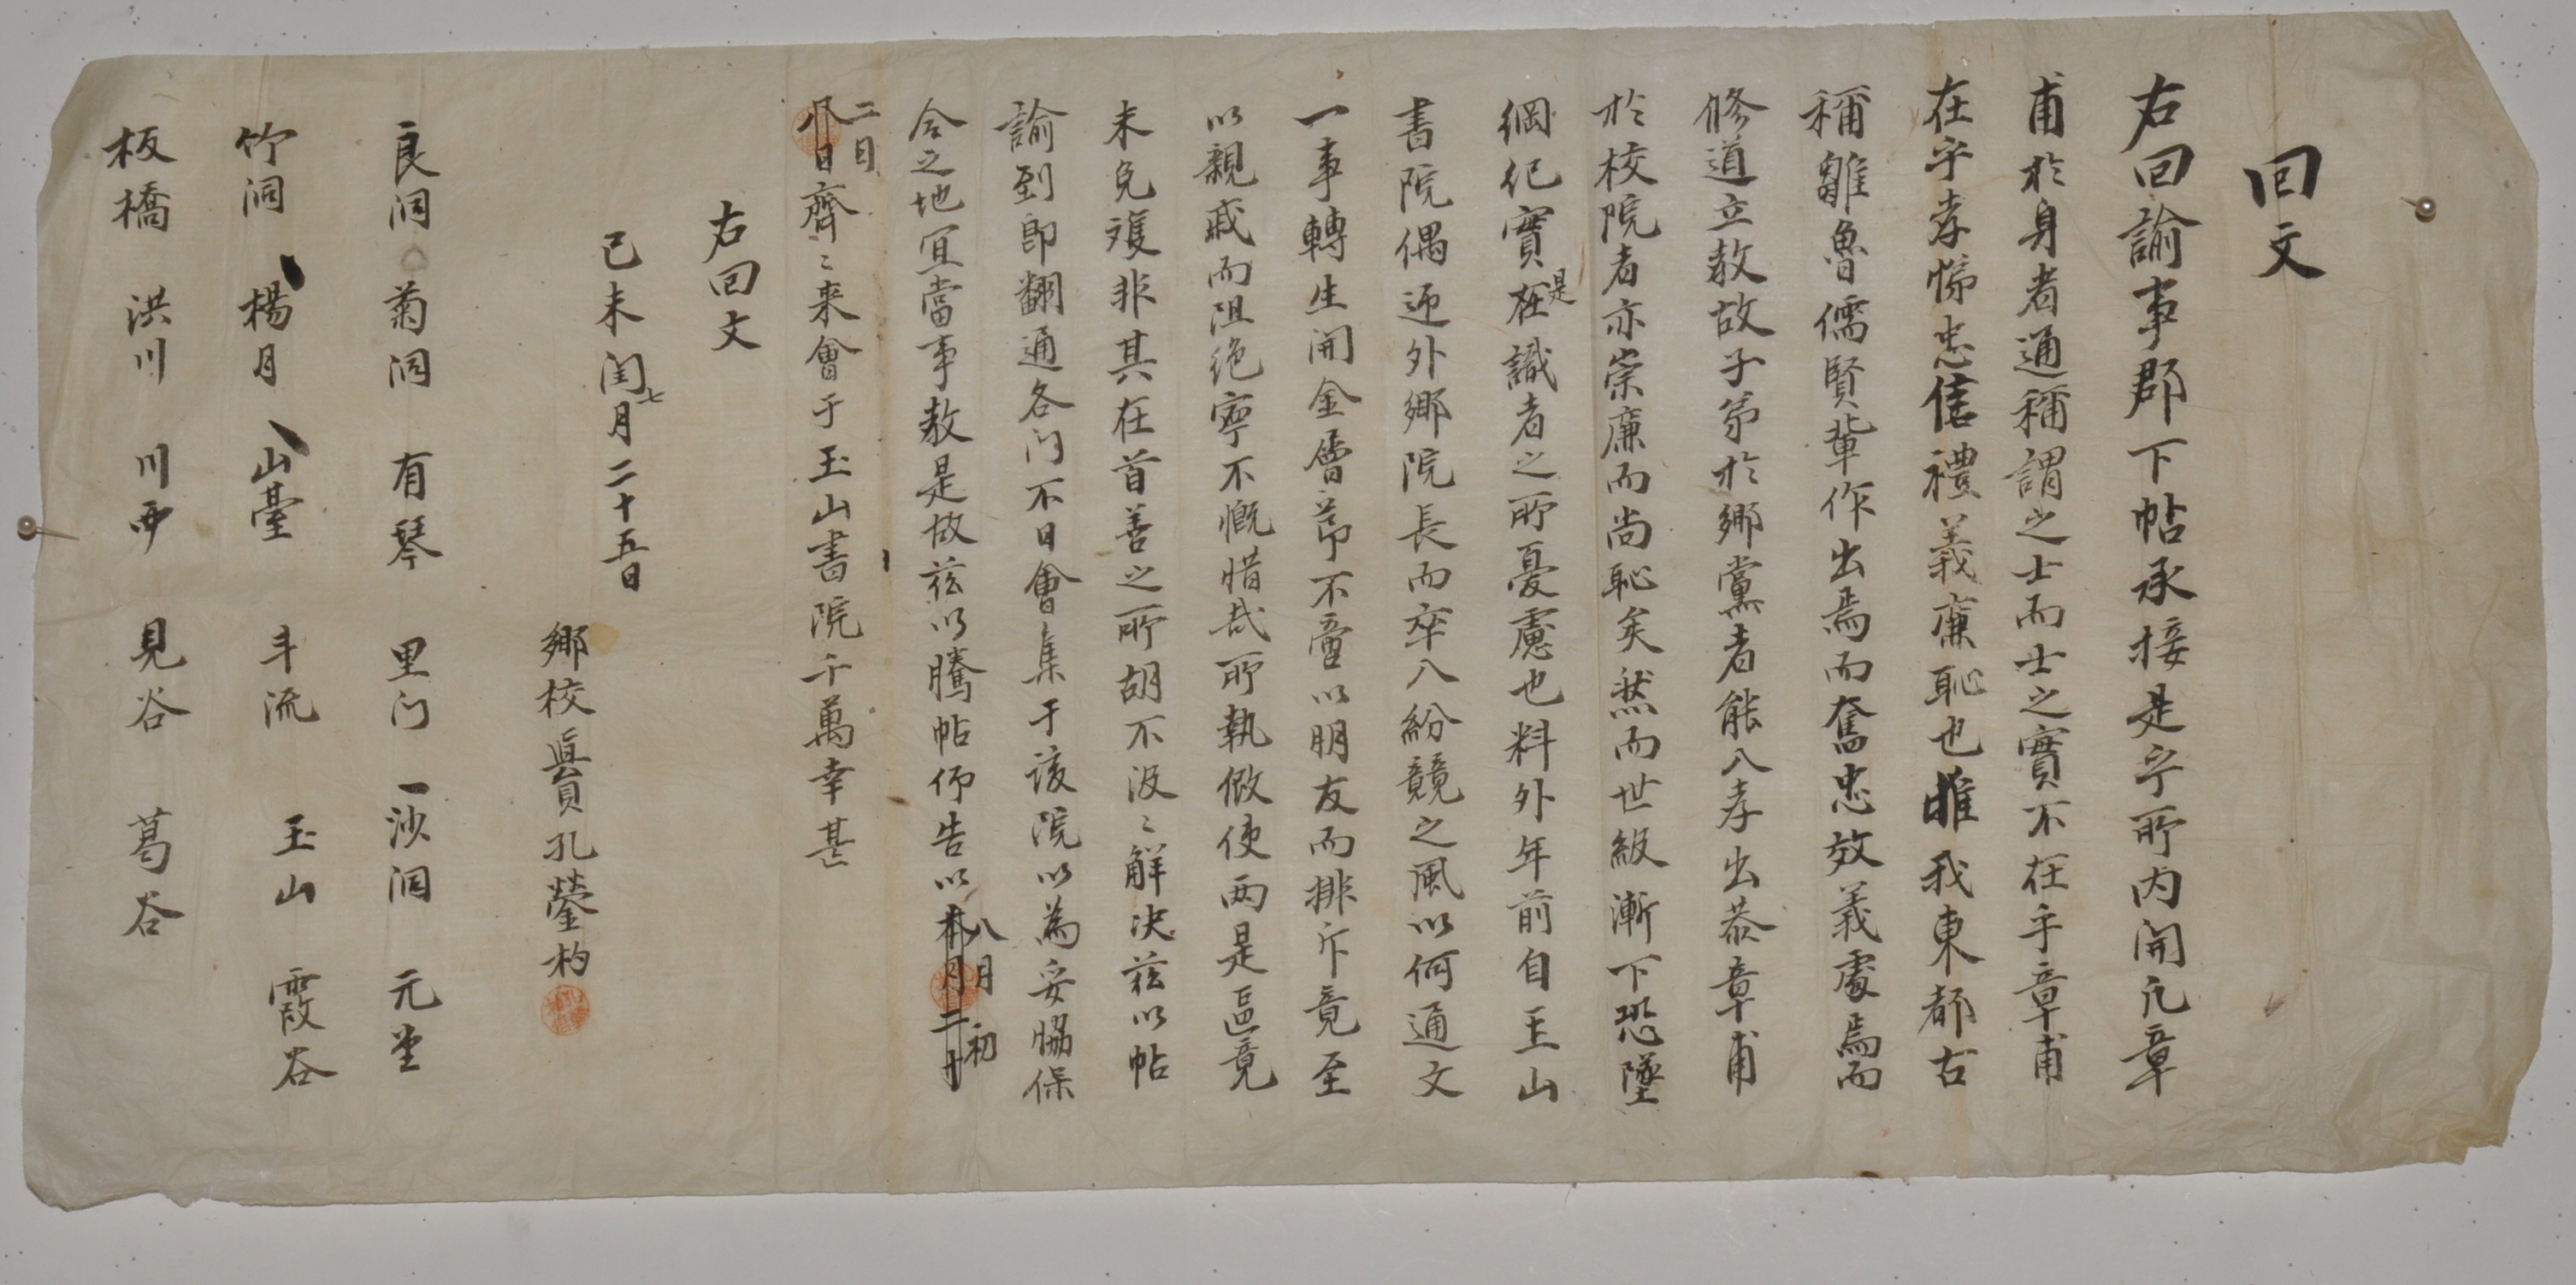 回文
右回諭事郡下帖承接是乎所內開凡章
甫於身者通稱謂之士而士之實不在乎章甫
在乎孝悌忠信禮義廉恥也惟我東都古
稱雖魯儒賢輩作出焉而奮忠效義處焉而
修道立教故子弟於鄉黨者能入孝出恭章甫
於校院者亦崇廉而尚恥矣然而世級漸下恐墜
綱紀實是在識者之所憂慮也料外年前自玉山
書院偶迎外鄉院長而卒入紛競之風以何通文
一事轉生開金層節不啻以朋友而排斥竟至
以親戚而阻絶寧不慨惜哉所執做使兩是區竟
未免雙非其在首善之所胡不汲〻解決玆以帖
諭到卽翻通各门不日會集于該院以為妥脇保
合之地宜當事教是故玆以騰帖仰告以八月初
二日齊〻來會于玉山書院千萬幸甚
右回文
己未閏七月二十五日
鄉校眞員孔瑩杓
良洞 菊洞 有琴 里门 一沙洞 元堂
竹洞 楊月 山臺 斗流 玉山 霞谷
板橋 洪川 川西 見谷 葛谷